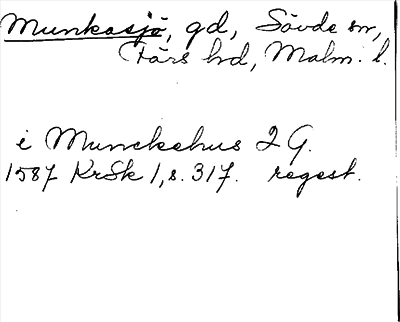 Munkasjö, gd, Sövde sn,
Färs hd, Malm. l.
i Munckehus 2 G.
1587 KrSk 1, s. 317. regest.